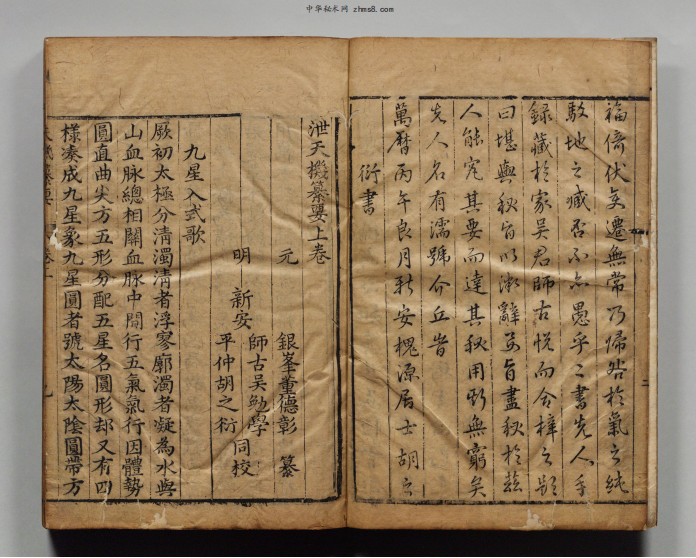 中华秘术网 zhms8.com
福倚伏矣遷無常乃歸咎於氣之純
駁地之臧否不亦愚乎二書先人手
錄藏於家吳君師古悅而合梓之顏
曰堪輿秘旨以辭旨盡秘於茲
人能究其要而達其秘用斯無窮矣
先人名有濡號介丘者
萬曆丙午良月新安槐源居士胡之
衍書
泄天機纂要上卷
元 銀峯董德彰 纂
明 新安 師古吳勉學 平仲胡之衍 同校
九星入式歌
厥初太極分清濁清者浮寥廓濁者凝為水與
山血脉總相關血脉中間行五氣氣行因體勢
圓直曲尖方五形分配五星名圓形却又有四
樣湊成九星象九星圓者號太陽太陰圓帶方